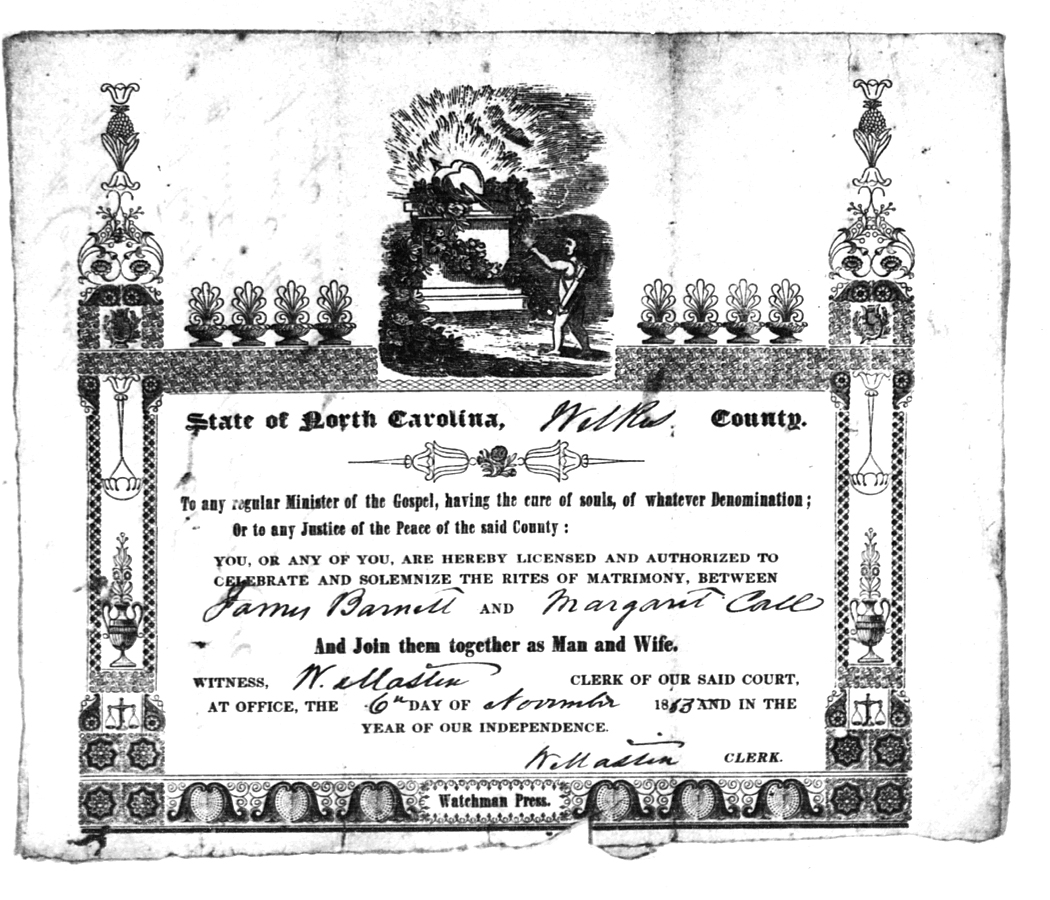 State of North Carolina, Wilkes County.
To any regular Minister of the Gospel, having the cure of souls, of whatever Denomination;
Or to any Justice of the Peace of the said County:
YOU, OR ANY OF YOU, ARE HEREBY LICENSED AND AUTHORIZED TO
CELEBRATE AND SOLEMNIZE THE RITES OF MATRIMONY, BETWEEN
James Barnett AND Margaret Call
And Join them together as Man and Wife.
WITNESS, W. Mastin CLERK OF OUR SAID COURT,
AT OFFICE, THE 6th DAY OF November AND IN THE
YEAR OF OUR INDEPENDENCE.
W. Mastin CLERK.
Watchman Press.